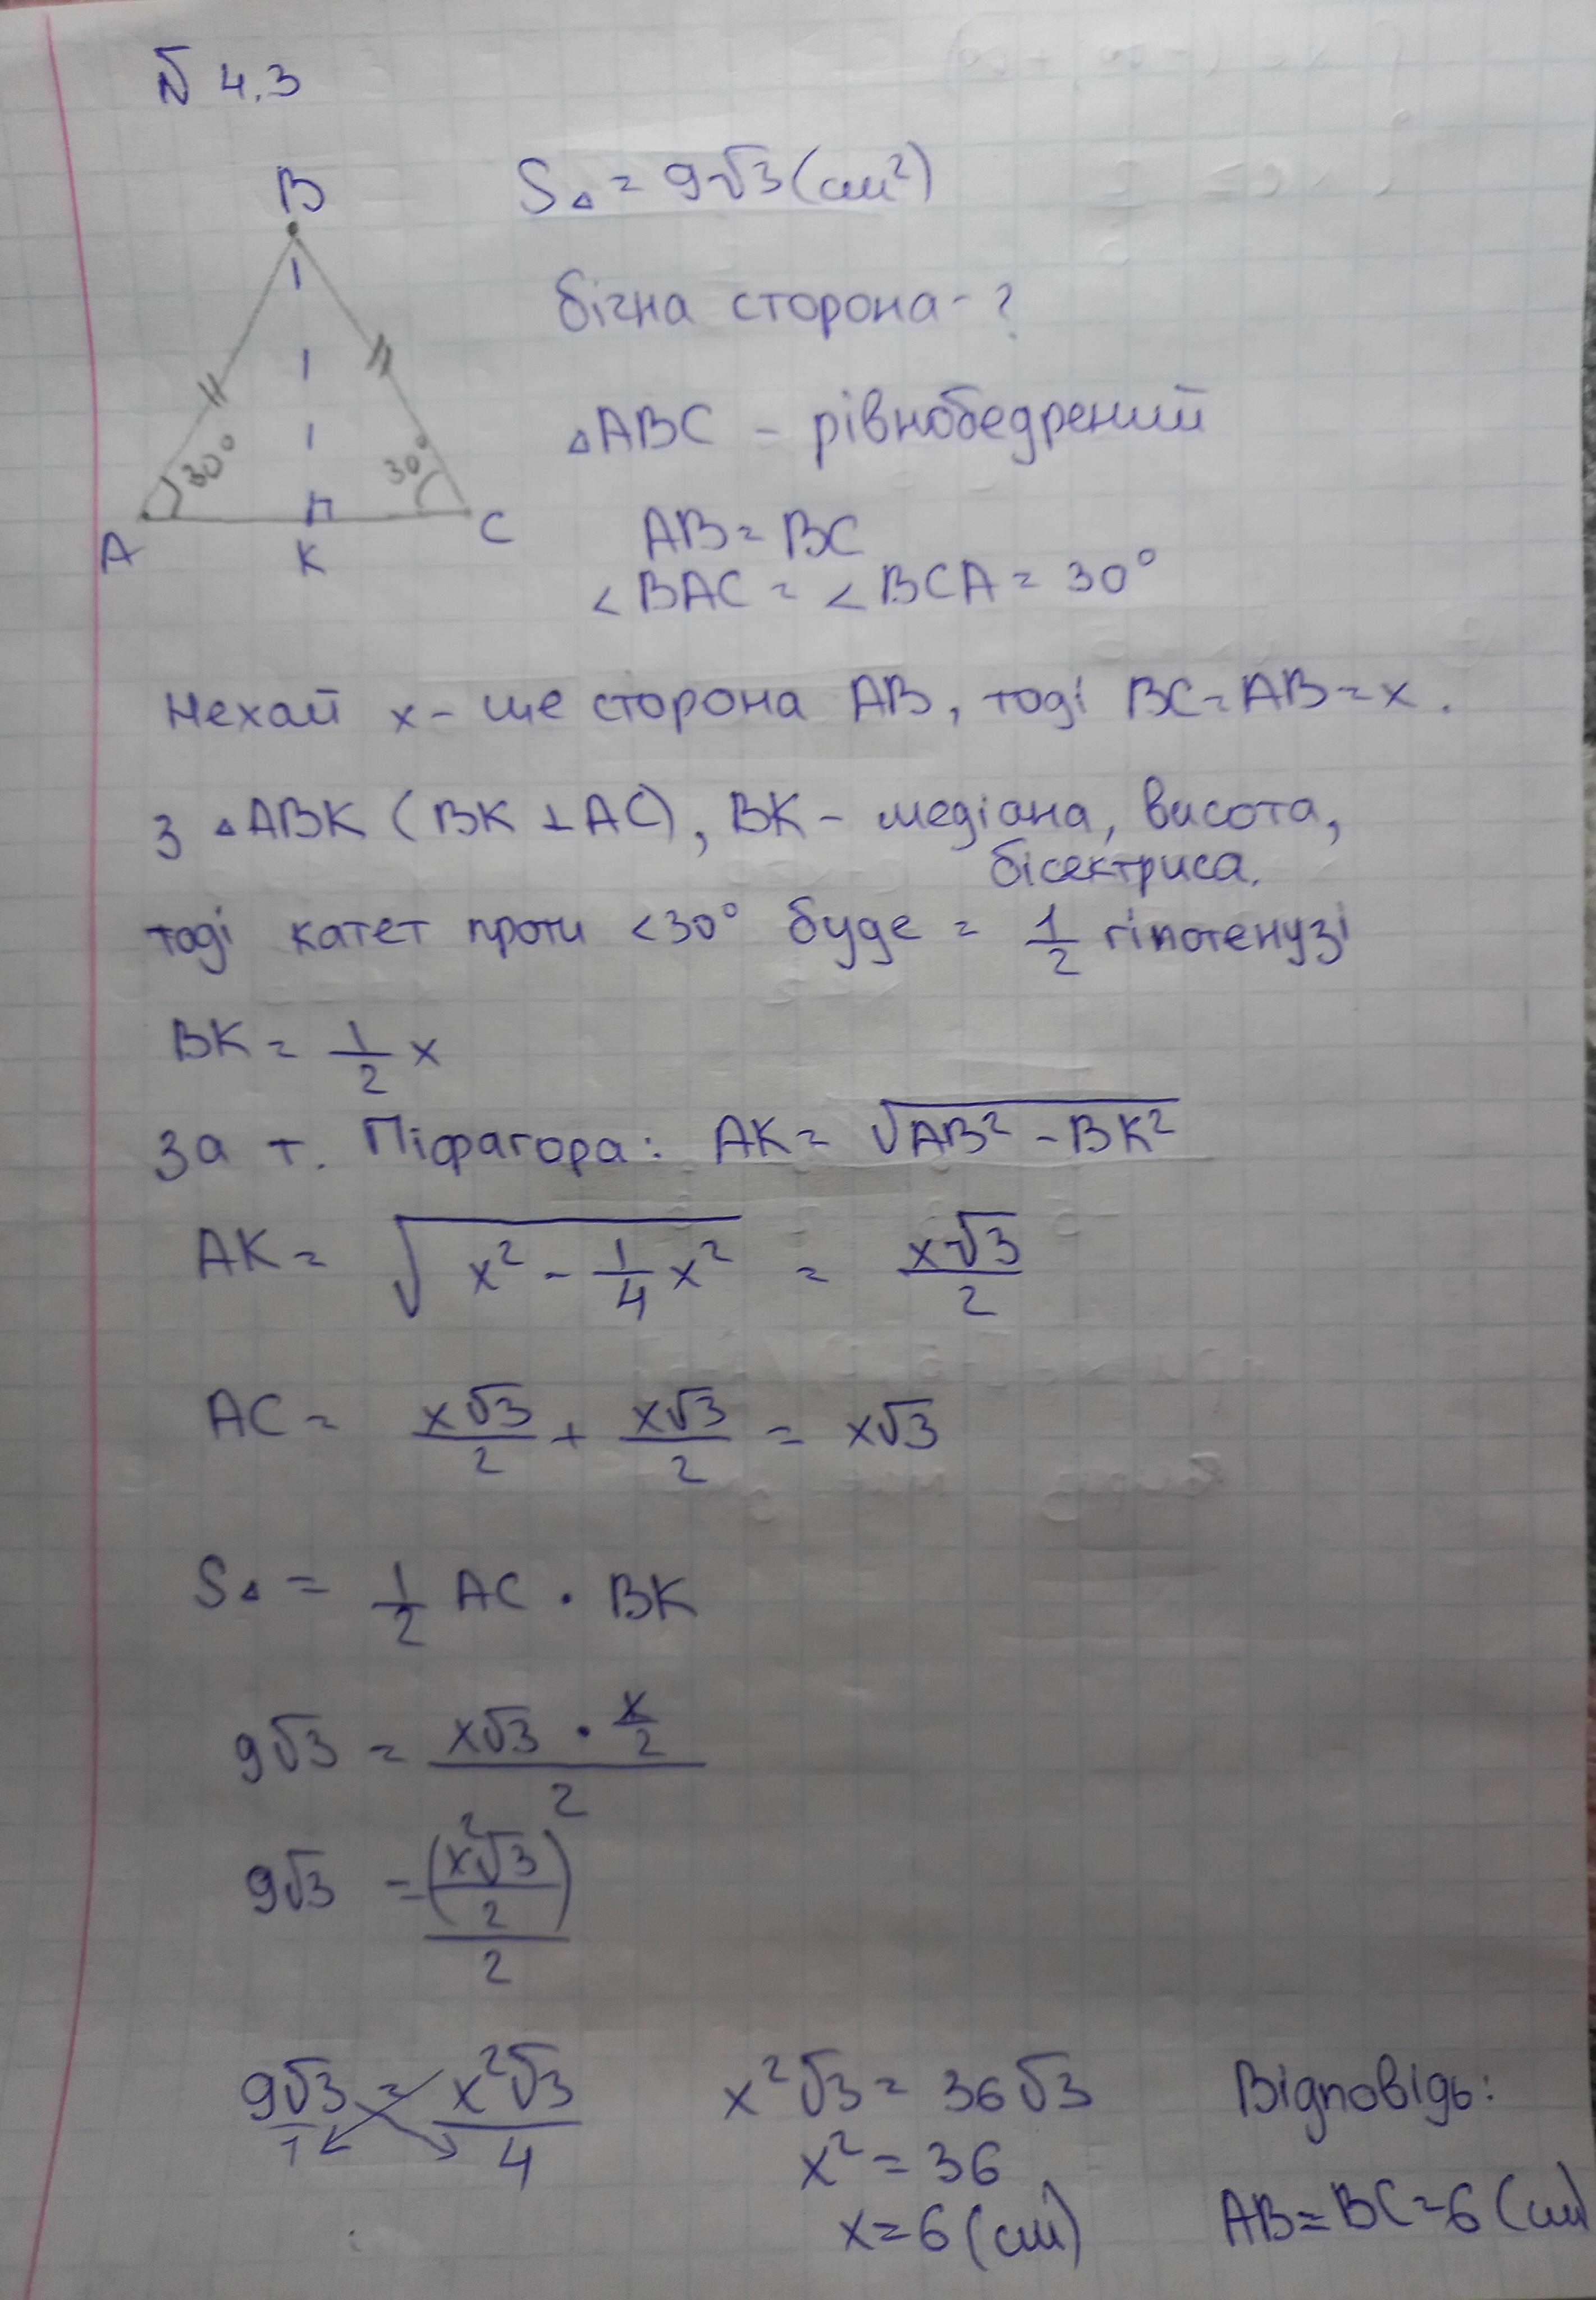 № 4.3
B
S△ = 9√3 (см²)
бічна сторона - ?
△ABC - рівнобедрений
30° 30°
A K C
AB = BC
∠BAC = ∠BCA = 30°
Нехай x - ще сторона AB, тоді BC = AB = x.
З △ABK (BK ⊥ AC), BK - медіана, висота,
бісектриса.
тоді катет проти ∠30° буде = 1/2 гіпотенузі
BK = 1/2 x
За т. Піфагора: AK = √(AB² - BK²)
AK = √(x² - 1/4 x²) = x√3/2
AC = x√3/2 + x√3/2 = x√3
S△ = 1/2 AC · BK
9√3 = (x√3 · x/2)/2
9√3 = (x²√3/2)²/2
9√3/1 = x²√3/4
x²√3 = 36√3
x² = 36
x = 6 (см)
Відповідь:
AB = BC = 6 (см)